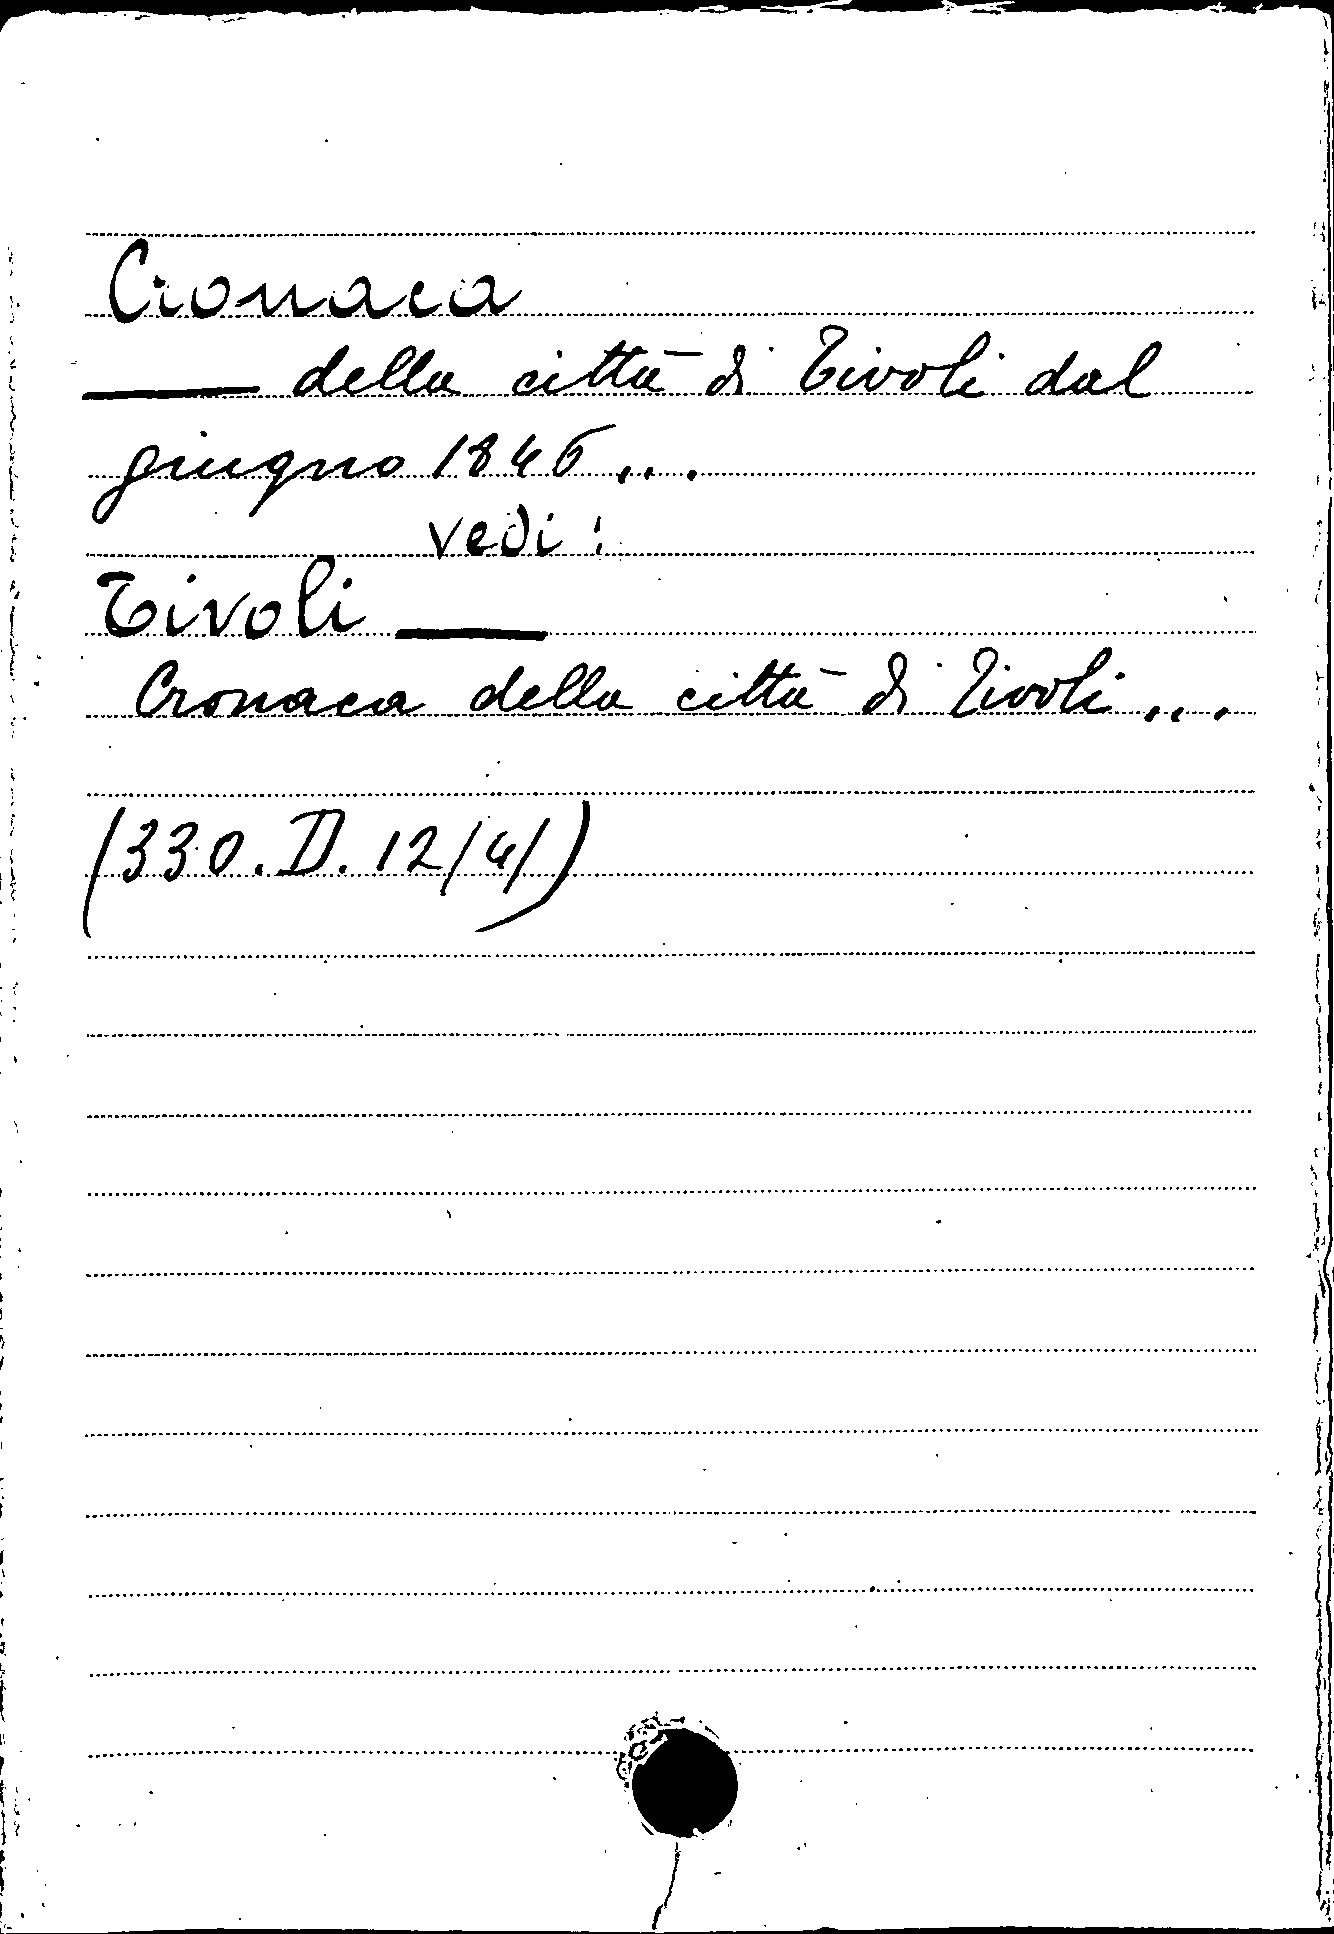 Cronaca
— della città di Tivoli dal
giugno 1846...
vedi:
Tivoli —
Cronaca della città di Tivoli...
(330.D.12/4/)